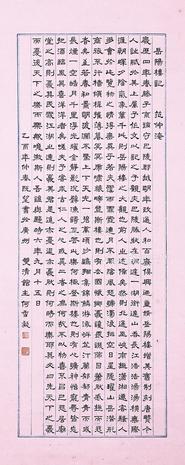 岳陽樓記 范仲淹
慶曆四年春滕子京謫守巴陵郡越明年政通人和百廢具興乃重修岳陽樓增其舊制刻唐賢今
人詩賦於其上屬予作文以記之予觀夫巴陵勝狀在洞庭一湖銜遠山吞長江浩浩湯湯橫無際
涯朝暉夕陰氣象萬千此則岳陽樓之大觀也前人之述備矣然則北通巫峽南極瀟湘遷客騷人
多會於此覽物之情得無異乎若夫霪雨霏霏連月不開陰風怒號濁浪排空日星隱曜山岳潛形
商旅不行檣傾楫摧薄暮冥冥虎嘯猿啼登斯樓也則有去國懷鄉憂讒畏譏滿目蕭然感極而悲
者矣至若春和景明波瀾不驚上下天光一碧萬頃沙鷗翔集錦鱗游泳岸芷汀蘭郁郁青青而或
長煙一空皓月千里浮光躍金靜影沉璧漁歌互答此樂何極登斯樓也則有心曠神怡寵辱皆忘
把酒臨風其喜洋洋者矣嗟夫予嘗求古仁人之心或異二者之為何哉不以物喜不以己悲居廟
堂之高則憂其民處江湖之遠則憂其君是進亦憂退亦憂然則何時而樂耶其必曰先天下之憂
而憂後天下之樂而樂歟噫微斯人吾誰與歸時六年九月十五日
乙酉年仲春 書於廣州 雙清館主